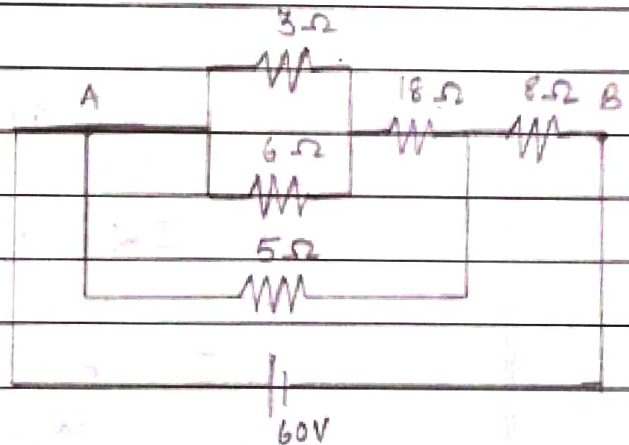 3Ω
A
18Ω
8Ω
B
6Ω
5Ω
60V